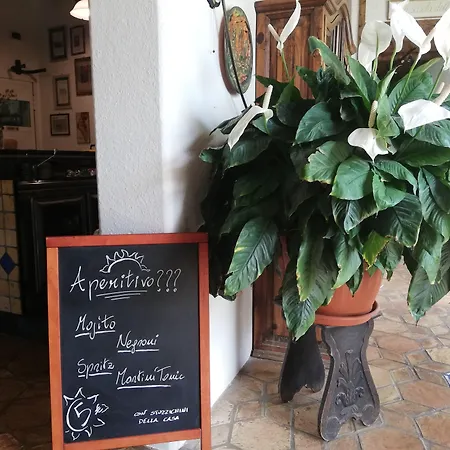 Aperitivo???
Mojito
Negroni
Spritz
Martini Tonic
5
CON STUZZICHINI
DELLA CASA